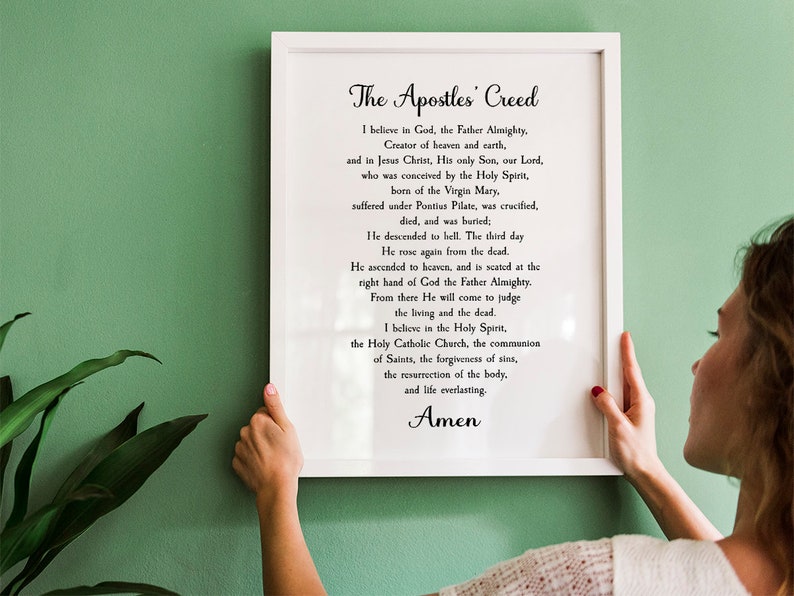 The Apostles' Creed
I believe in God, the Father Almighty,
Creator of heaven and earth,
and in Jesus Christ, His only Son, our Lord,
who was conceived by the Holy Spirit,
born of the Virgin Mary,
suffered under Pontius Pilate, was crucified,
died, and was buried;
He descended to hell. The third day
He rose again from the dead.
He ascended to heaven, and is seated at the
right hand of God the Father Almighty.
From there He will come to judge
the living and the dead.
I believe in the Holy Spirit,
the Holy Catholic Church, the communion
of Saints, the forgiveness of sins,
the resurrection of the body,
and life everlasting.
Amen